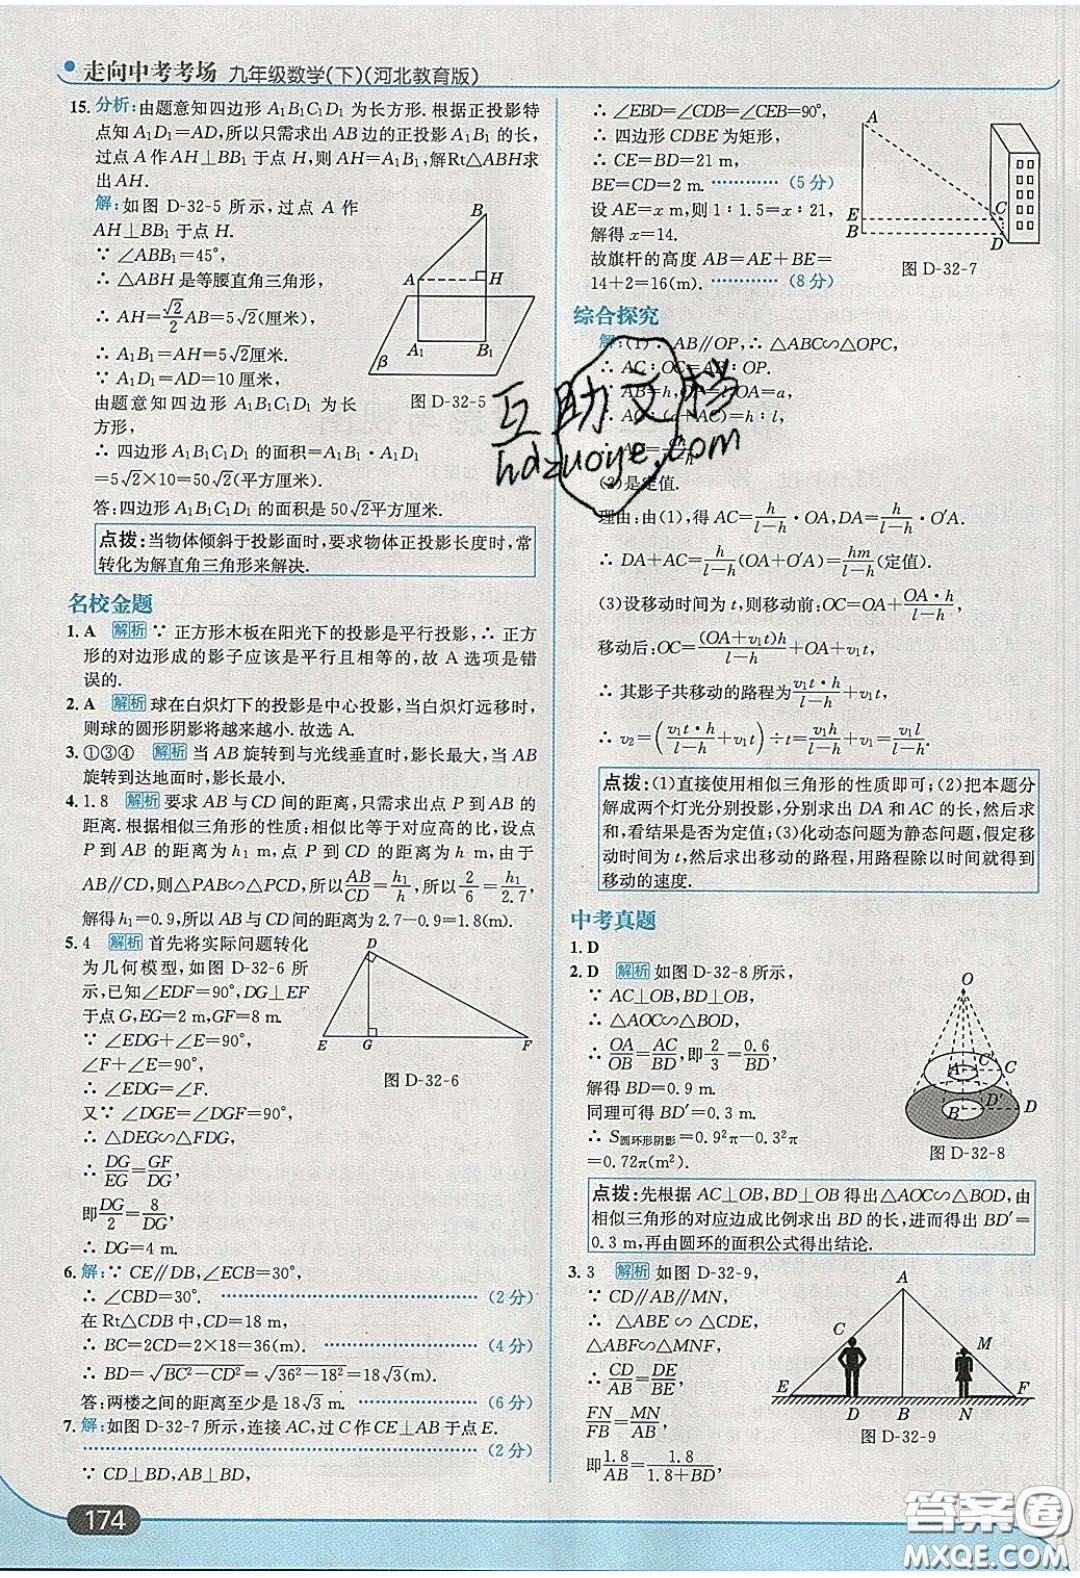 走向中考考场 九年级数学(下)(河北教育版)
15. 分析:由题意知四边形 A₁B₁C₁D₁ 为长方形.根据正投影特
点知 A₁D₁=AD,所以只需求出 AB 边的正投影 A₁B₁ 的长,
过点 A 作 AH⊥BB₁ 于点 H,则 AH=A₁B₁,解Rt△ABH求
出AH.
解:如图 D-32-5 所示,过点 A 作
AH⊥BB₁ 于点 H.
∵ ∠ABB₁=45°,
∴ △ABH 是等腰直角三角形,
∴ AH=√2/2 AB=5√2(厘米),
∴ A₁B₁=AH=5√2厘米.
∵ A₁D₁=AD=10 厘米,
由题意知四边形 A₁B₁C₁D₁ 为长
方形,
∴ 四边形 A₁B₁C₁D₁ 的面积=A₁B₁·A₁D₁
=5√2×10=50√2(平方厘米).
答:四边形 A₁B₁C₁D₁ 的面积是 50√2平方厘米.
B
A
H
A₁
B₁
β
图 D-32-5
点拨:当物体倾斜于投影面时,要求物体正投影长度时,常
转化为解直角三角形来解决.
名校金题
1. A 解析 ∵ 正方形木板在阳光下的投影是平行投影,∴ 正方
形的对边形成的影子应该是平行且相等的,故 A 选项是错
误的.
2. A 解析 球在白炽灯下的投影是中心投影,当白炽灯远移时,
则球的圆形阴影将越来越小.故选 A.
3. ①③④ 解析 当 AB 旋转到与光线垂直时,影长最大,当 AB
旋转到达地面时,影长最小.
4. 1.8 解析 要求 AB 与 CD 间的距离,只需求出点 P 到 AB 的
距离.根据相似三角形的性质:相似比等于对应高的比,设点
P 到 AB 的距离为 h₁ m,点 P 到 CD 的距离为 h m,由于
AB∥CD,则△PAB∽△PCD,所以AB/CD=h₁/h,所以2/6=h₁/2.7,
解得 h₁=0.9,所以 AB 与 CD 间的距离为 2.7-0.9=1.8(m).
5. 4 解析 首先将实际问题转化
为几何模型,如图 D-32-6 所
示,已知∠EDF=90°,DG⊥EF
于点 G,EG=2 m,GF=8 m.
∵ ∠EDG+∠E=90°,
∠F+∠E=90°,
∴ ∠EDG=∠F.
又∵ ∠DGE=∠DGF=90°,
∴ △DEG∽△FDG,
∴ DG/EG=GF/DG,
即DG/2=8/DG,
∴ DG=4 m.
D
E
G
F
图 D-32-6
6. 解:∵ CE∥DB,∠ECB=30°,
∴ ∠CBD=30°. (2 分)
在 Rt△CDB 中,CD=18 m,
∴ BC=2CD=2×18=36(m). (4 分)
∴ BD=√(BC²-CD²)=√(36²-18²)=18√3(m).
答:两楼之间的距离至少是 18√3 m. (6 分)
7. 解:如图 D-32-7 所示,连接 AC,过 C 作 CE⊥AB 于点 E.
(2 分)
∵ CD⊥BD,AB⊥BD,
174
∴ ∠EBD=∠CDB=∠CEB=90°,
∴ 四边形 CDBE 为矩形,
∴ CE=BD=21 m,
BE=CD=2 m. (5 分)
设 AE=x m,则 1∶1.5=x∶21,
解得 x=14.
故旗杆的高度 AB=AE+BE=
14+2=16(m). (8 分)
A
E
B
C
D
图 D-32-7
综合探究
解:(1)∵ AB∥OP,∴ △ABC∽△OPC,
∴ AC∶OC=AB∶OP.
(2)是定值.
理由:由(1),得 AC=h/(l-h)·OA,DA=h/(l-h)·O′A.
∴ DA+AC=h/(l-h)(OA+O′A)=hm/(l-h)(定值).
(3)设移动时间为 t,则移动前:OC=OA+OA·h/(l-h),
移动后:OC=(OA+v₁t)h/(l-h)+v₁t,
∴ 其影子共移动的路程为v₁t·h/(l-h)+v₁t,
∴ v₂=(v₁t·h/(l-h)+v₁t)÷t=v₁h/(l-h)+v₁=v₁l/(l-h).
点拨:(1)直接使用相似三角形的性质即可;(2)把本题分
解成两个灯光分别投影,分别求出 DA 和 AC 的长,然后求
和,看结果是否为定值;(3)化动态问题为静态问题,假定移
动时间为 t,然后求出移动的路程,用路程除以时间就得到
移动的速度.
中考真题
1. D
2. D 解析 如图 D-32-8 所示,
∵ AC⊥OB,BD⊥OB,
∴ △AOC∽△BOD,
∴ OA/OB=AC/BD,即2/3=0.6/BD,
解得 BD=0.9 m.
同理可得 BD′=0.3 m,
∴ S圆环形阴影=0.9²π-0.3²π
=0.72π(m²).
O
A
C
C
B
D′
D
图 D-32-8
点拨:先根据 AC⊥OB,BD⊥OB 得出△AOC∽△BOD,由
相似三角形的对应边成比例求出 BD 的长,进而得出 BD′=
0.3 m,再由圆环的面积公式得出结论.
3. 3 解析 如图 D-32-9,
∵ CD∥AB∥MN,
∴ △ABE ∽ △CDE,
△ABF∽△MNF,
∴ CD/AB=DE/BE,
FN/FB=MN/AB,
即1.8/AB=1.8/(1.8+BD),
A
C
M
E
D
B
N
F
图 D-32-9
互助文档
hdzuoye.com
答案圈
MXQE.COM